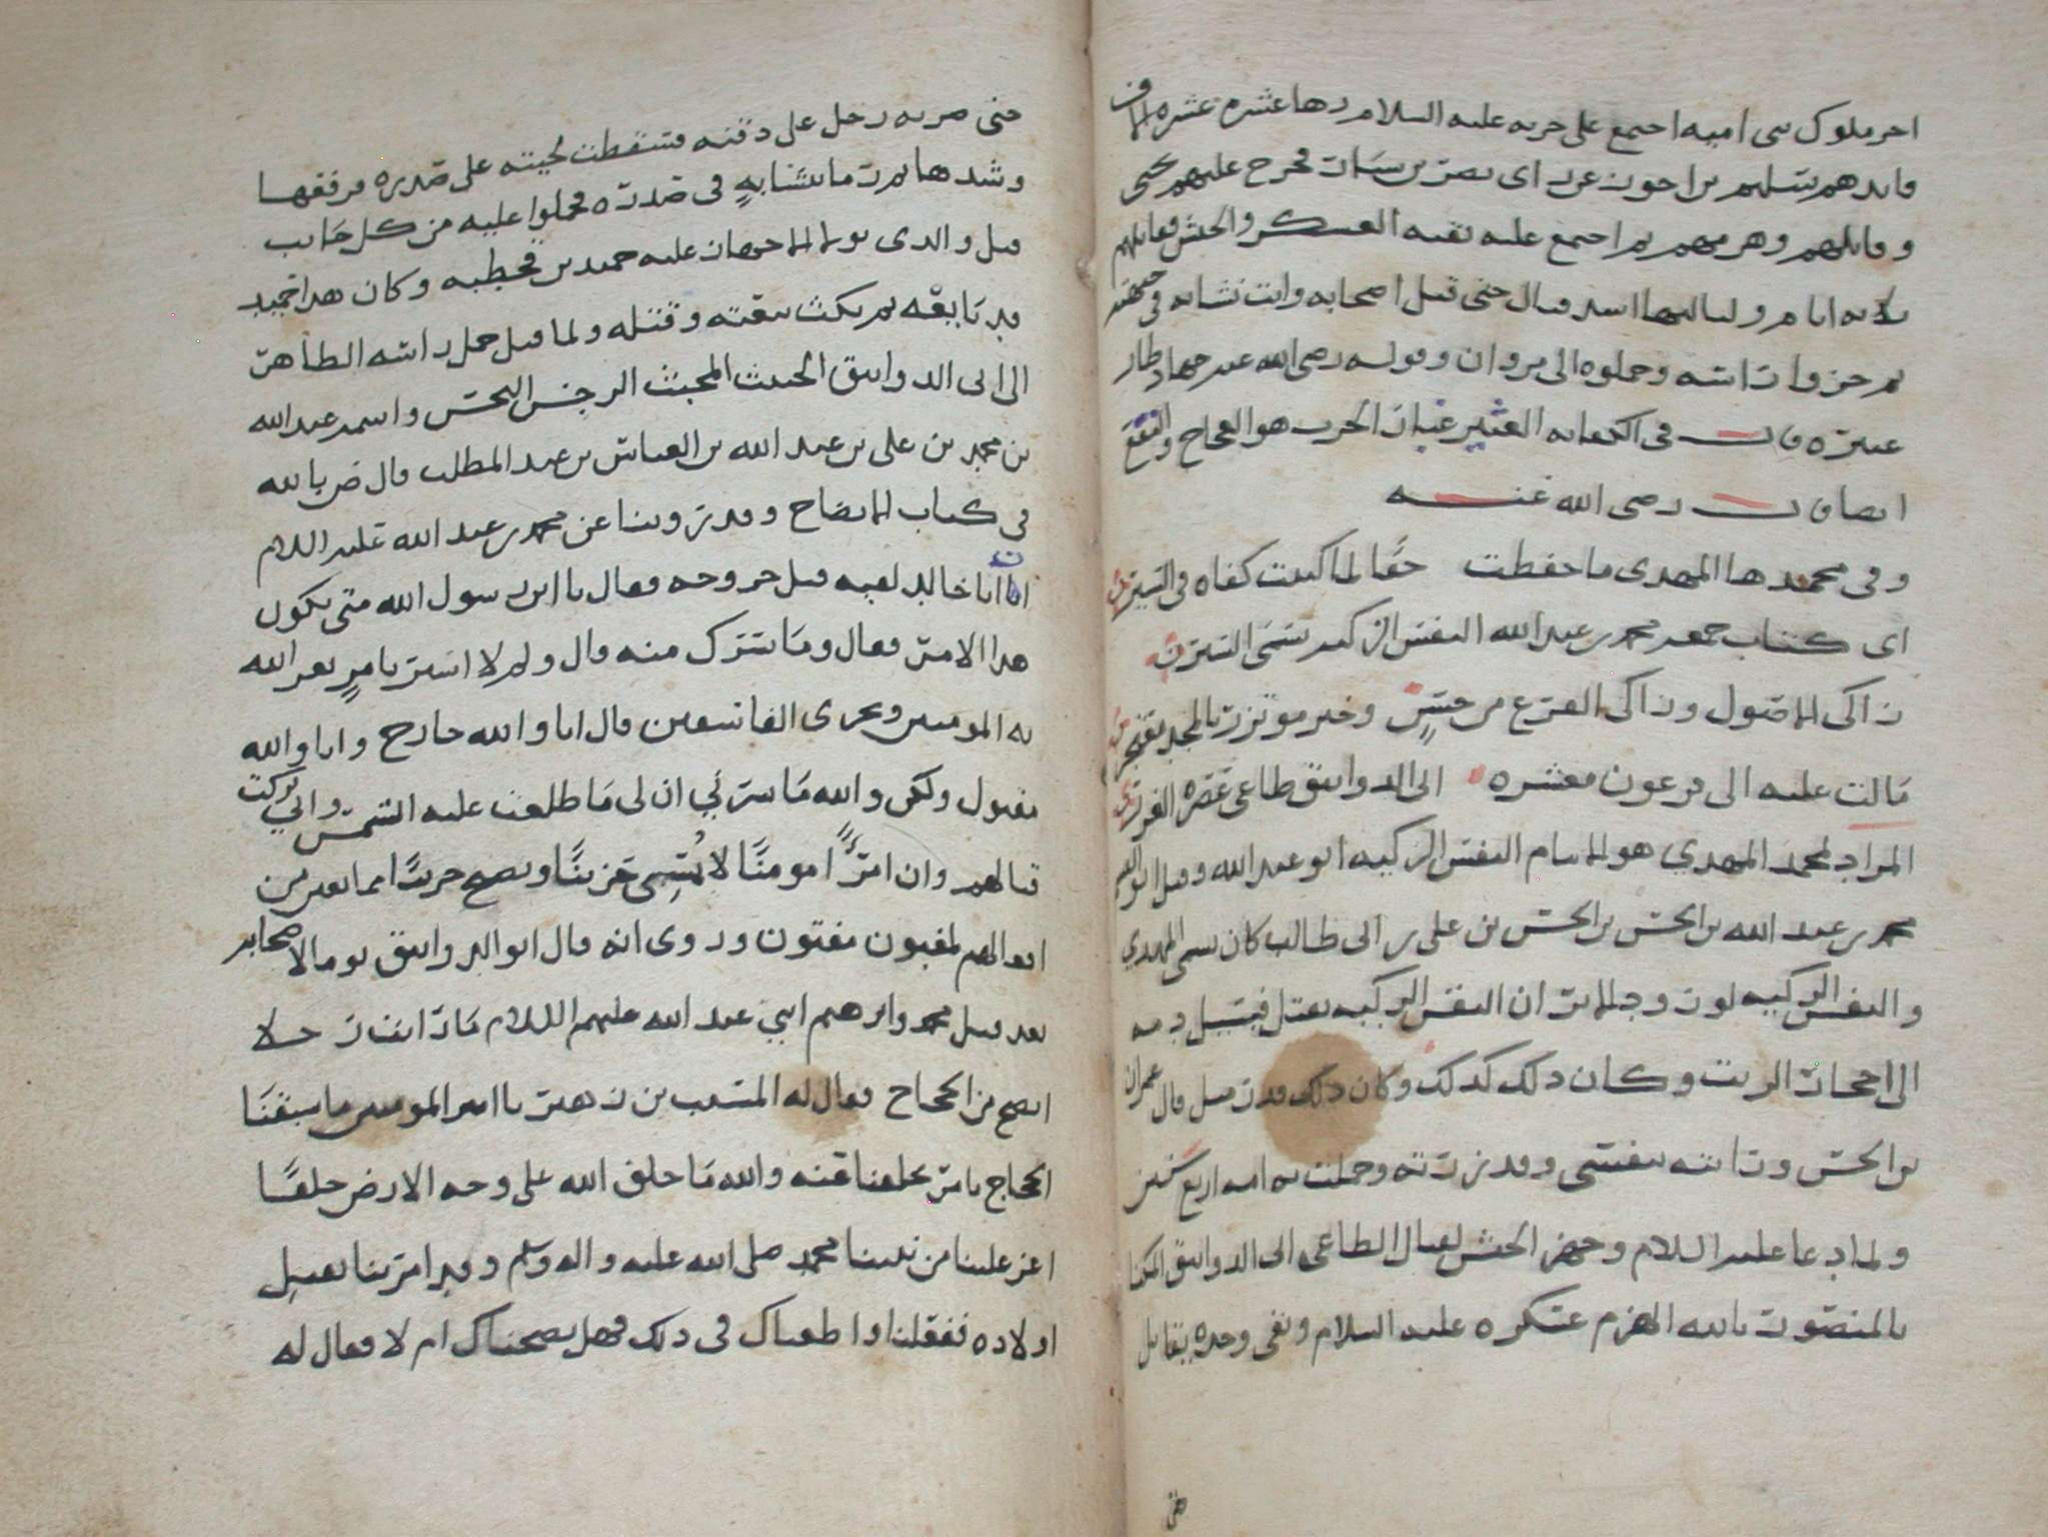 اخر ملوك بنى اميه اجتمع على حربه عليه السلام رها عشره عشره الاف
قايدهم سليم بن احون عن اى نصر بن سيار فخرج عليهم يحيى
وقاتلهم وهزمهم ثم اجتمع عليه بقيه العسكر والجيش فقاتلهم
ثلاثه ايام ولياليها اشد قتال حتى قتل اصحابه واتت نشابه فى جبهته
ثم حزوا راسه وحملوه الى مروان وقوله رضى الله عنه جهاد طار
عثيره قال فى الكفايه العثير غبار الحرب هو العجاج والنقع
ايضا قال رضى الله عنه
وفى محمدها المهدى ما حفظت حقا لما كتبت كفاه فى السير
اى كتاب جمعه محمد بن عبد الله النفس الزكيه يسمى السير
زاكى الاصول وزاكى الفرع من حسن وخير موتزر بالمجد
مالت عليه الى فرعون معشره ابى الدوانيق طاغى عصره
المراد لمحمد المهدي هو الامام النفس الزكيه ابو عبد الله وقيل ابو القسم
محمد بن عبد الله بن الحسن بن الحسن بن على بن ابى طالب كان يسمى المهدي
والنفس الزكيه لورود الاثر ان النفس الزكيه يقتل فيسيل دمه
الى احجار الزيت وكان ذلك كذلك وكان ذلك قدر قيل قال عمران
بن الحسن ورايته بنفسى وقد زرته وحملت به امه اربع سنين
ولما دعا عليه السلام وجهز الجيش لقتال الطاغى ابى الدوانيق المكنا
بالمنصور بالله انهزم عسكره عليه السلام وبقى وحده يقاتل
حتى
حتى ضربه رجل على دقنه فسقطت لحيته على صدره فرفعها
وشدها ثم رما بنشابهٍ فى صدره فحملوا عليه من كل جانب
قيل والذى تولا الاجهاز عليه حميد بن قحطبه وكان هذا حميد
قد بايعه ثم نكث بيعته وقتله ولما قتل حمل راسه الطاهر
الى ابى الدوانيق الخبيث المخبث الرجس النجس واسمه عبد الله
بن محمد بن على بن عبد الله بن العباس بن عبد المطلب قال ض بالله
فى كتاب الايضاح وقد روينا عن محمد بن عبد الله عليه السلام
ان ابا خالد لقيه قبل خروجه فقال يا ابن رسول الله متى يكون
هذا الامر فقال وما يسرك منه قال ولم لا اسر بامرٍ يعز الله
به المومنين ويخزى الفاسقين قال انا والله خارج وانا والله
مقتول ولكن والله ما يسرني ان لى ما طلعت عليه الشمس واني تركت
قتالهم وان امرًا مومنًا لا يُمسى حزينًا ويصبح حزينًا مما يعاين من
افعالهم لمغبون مفتون وروى انه قال ابو الدوانيق يوما لاصحابه
بعد قتل محمد وابرهيم ابني عبد الله عليهم السلام ما رايت رجلا
انصح من الحجاج فقال له المسيب بن زهير يا امير المومنين ما سبقنا
الحجاج بامر تخلفنا عنه والله ما خلق الله على وجه الارض خلقًا
اعز علينا من نبينا محمد صلى الله عليه واله وسلم وقد امرتنا بقتل
اولاده ففعلنا واطعناك فى ذلك فهل نصحناك ام لا فقال له